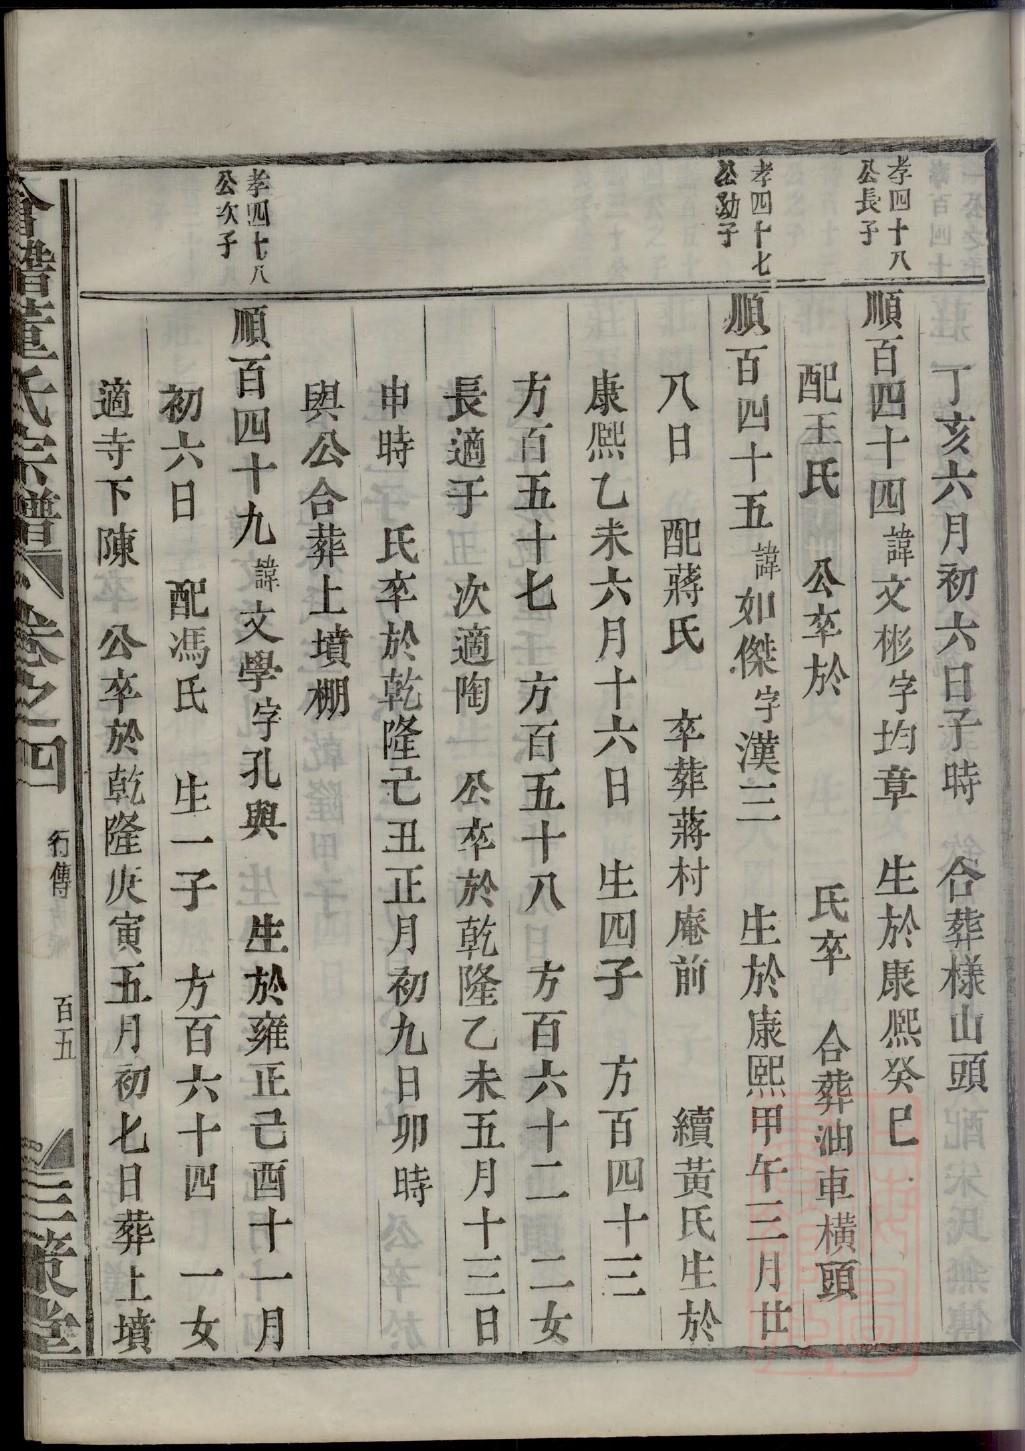 丁亥六月初六日子時　合葬樣山頭
孝四十八
公長子
順百四十四諱文彬字均章　生於康熙癸巳
配王氏　公卒於　氏卒　合葬油車橫頭
孝四十七
公幼子
順百四十五諱如傑字漢三　生於康熙甲午三月廿
八日　配蔣氏　卒葬蔣村庵前　續黃氏生於
康熙乙未六月十六日　生四子　方百四十三
方百五十七　方百五十八　方百六十二　二女
長適于　次適陶　公卒於乾隆乙未五月十三日
申時　氏卒於乾隆己丑正月初九日卯時
與公合葬上墳棚
孝四十八
公次子
順百四十九諱文學字孔與　生於雍正己酉十一月
初六日　配馮氏　生一子　方百六十四　一女
適寺下陳　公卒於乾隆庚寅五月初七日葬上墳
會稽董氏宗譜　卷之四　行傳　百五　三策堂